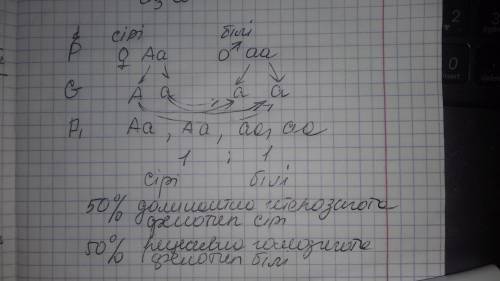 сірі білі
P ♀ Aa ♂ aa
G A a a a
P₁ Aa, Aa, aa, aa
1 : 1
сірі білі
50% домінантно гетерозигота
фенотип сірі
50% рецесивно гомозигота
фенотип білі